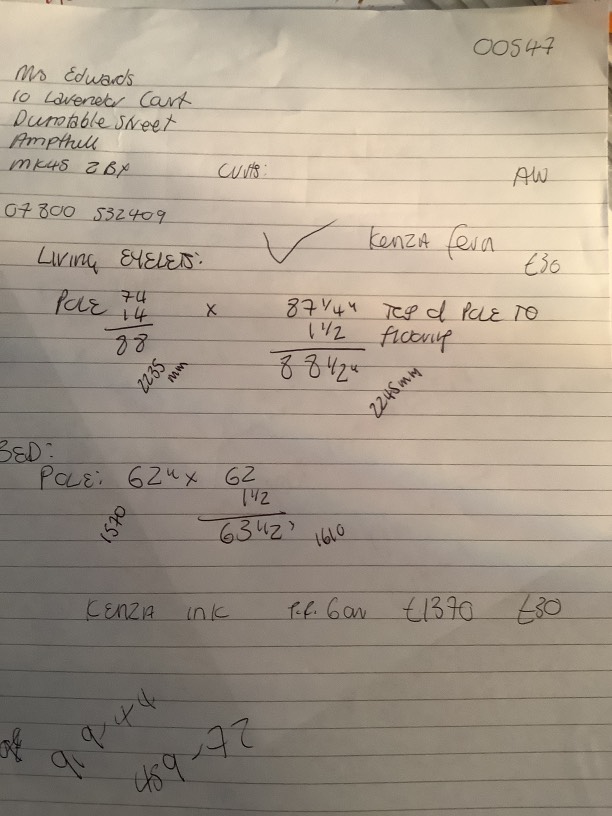 00547
Ms Edwards
10 Lavender Court
Dunstable Street
Ampthill
MK45 2BX
AW
07800 532409
Kenza fern
LIVING EYELETS:
£30
POLE 74 x 87 1/4" TOP of POLE TO
14 1 1/2 flooring
88 88 1/2"
2235 mm 2245mm
BED:
POLE: 62" x 62
1 1/2
63 1/2"
1570 1610
KENZA INK £1370 £30
459.72